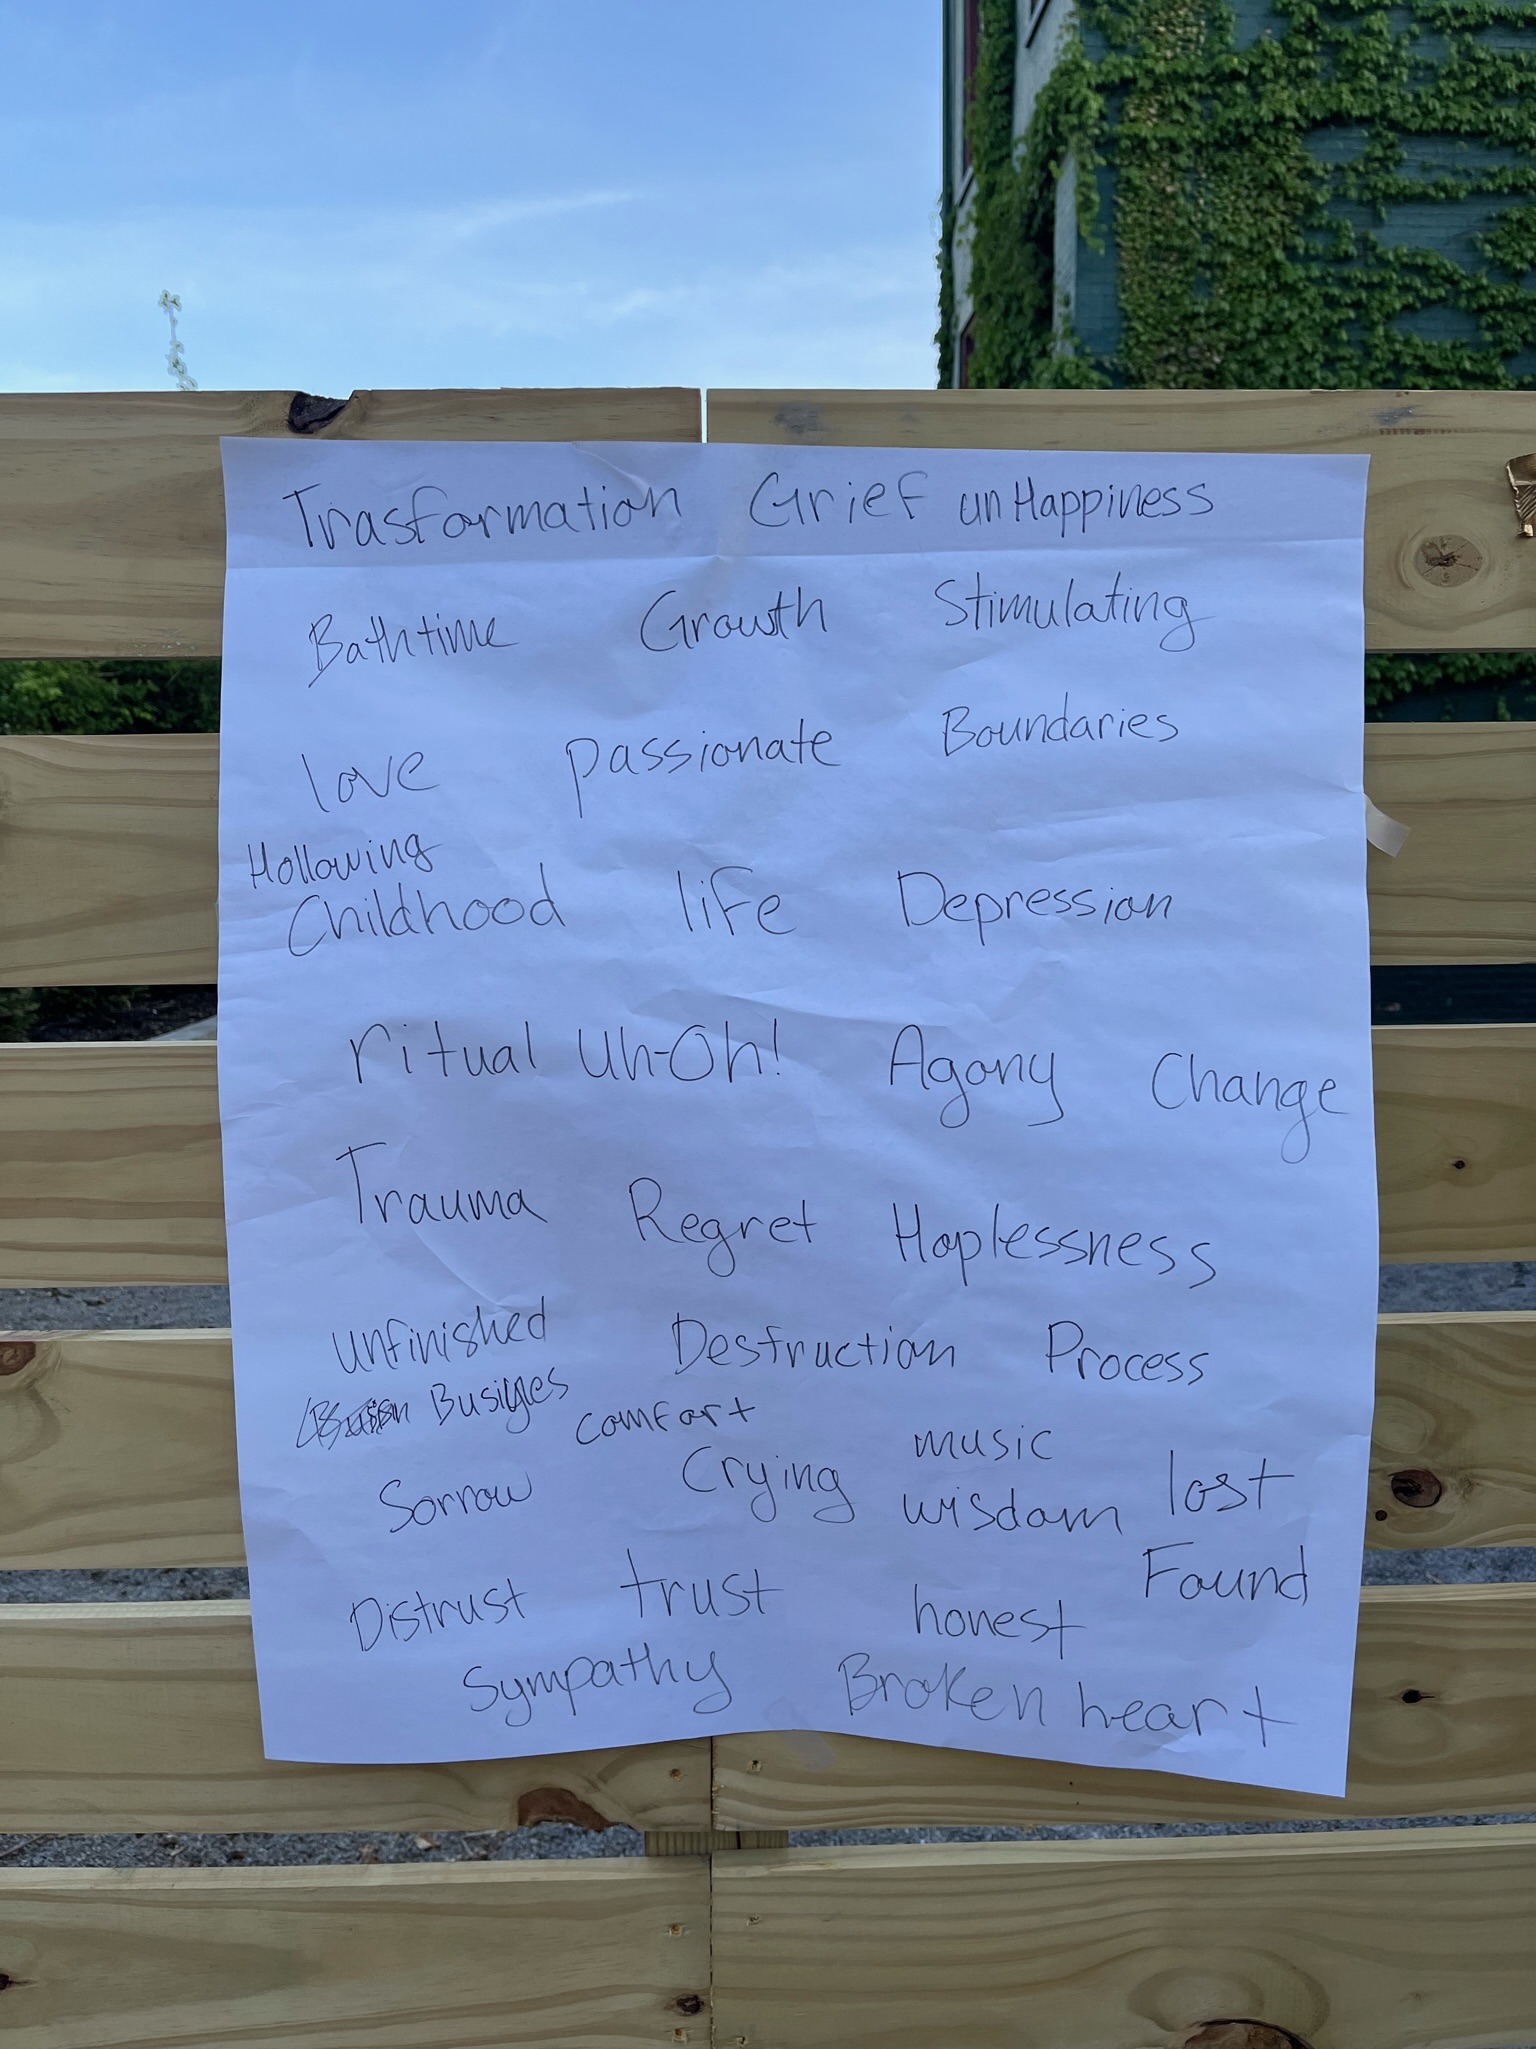 Trasformation Grief unHappiness
Bathtime Growth Stimulating
love passionate Boundaries
Hollowing
Childhood life Depression
ritual Uh-Oh! Agony Change
Trauma Regret Hoplessness
Unfinished Destruction Process
comfort
music
Sorrow Crying wisdom lost
Found
Distrust trust honest
Sympathy Broken heart